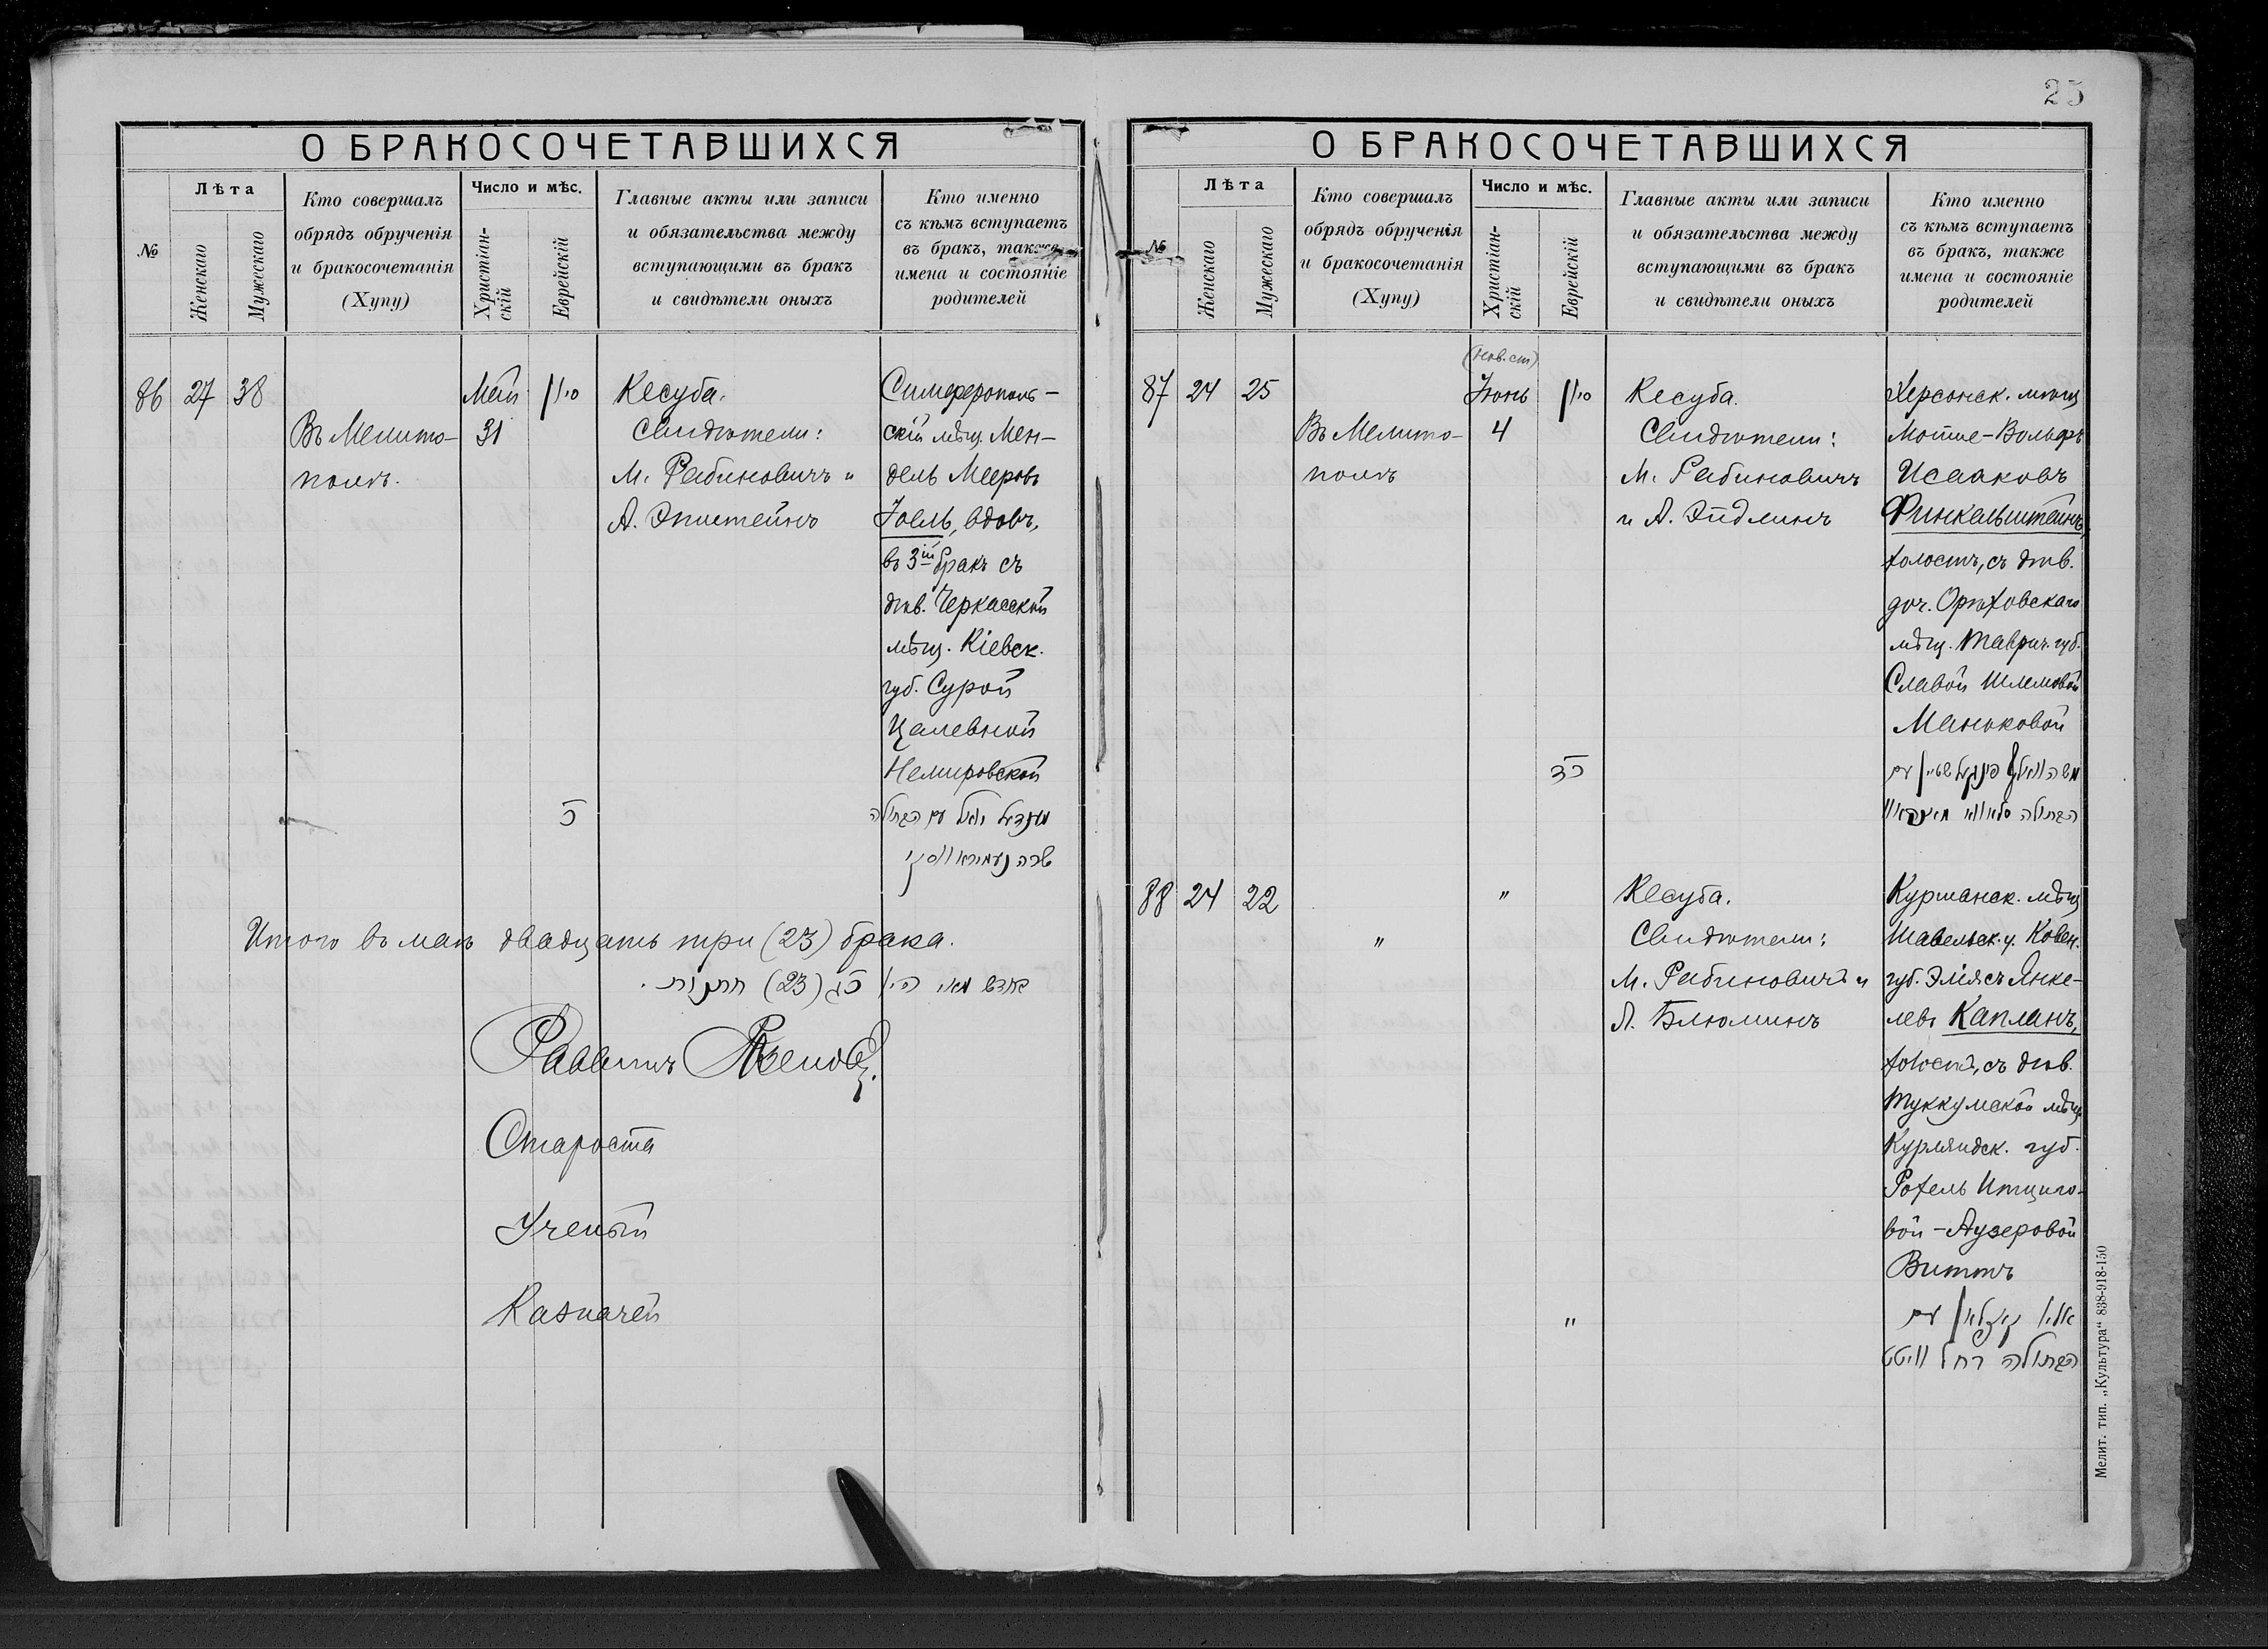 25
О БРАКОСОЧЕТАВШИХСЯ
№
Лѣта
Женскаго
Мужескаго
Кто совершалъ
обрядъ обрученія
и бракосочетанія
(Хупу)
Число и мѣс.
Христіан-
скій
Еврейскій
Главные акты или записи
и обязательства между
вступающими въ бракъ
и свидѣтели оныхъ
Кто именно
съ кѣмъ вступаетъ
въ бракъ, также
имена и состояніе
родителей
86 27 38
Въ Мелито-
полѣ.
Май
31
סיון
ב
Кесуба.
Свидѣтели:
М. Рабиновичъ и
А. Эпштейнъ
Симферополь-
скій мѣщ. Мен-
дель Мееровъ
Іоель, вдовъ,
въ 3ій бракъ съ
дѣв. Черкасской
мѣщ. Кіевск.
губ. Сурой
Цалевной
Немировской
מענדל יואל עם הבתולה
שרה נעמיראווסקי
Итого въ маѣ двадцать три (23) брака.
בחדש מאי היו כג (23) חתונות.
Раввинъ
Староста
Ученый
Казначей
О БРАКОСОЧЕТАВШИХСЯ
№
Лѣта
Женскаго
Мужескаго
Кто совершалъ
обрядъ обрученія
и бракосочетанія
(Хупу)
Число и мѣс.
Христіан-
скій
Еврейскій
Главные акты или записи
и обязательства между
вступающими въ бракъ
и свидѣтели оныхъ
Кто именно
съ кѣмъ вступаетъ
въ бракъ, также
имена и состояніе
родителей
87 24 25
Въ Мелито-
полѣ
(нов. ст)
Іюнь
4
סיון
כד
Кесуба.
Свидѣтели:
М. Рабиновичъ
и А. Эйдлинъ
Херсонск. мѣщ
Мотше-Вольфъ
Исааковъ
Финкельштейнъ,
холостъ, съ дѣв.
доч. Орѣховскаго
мѣщ. Таврич. губ.
Славой Шлемовой
Манюковой
משה וואלף פינקעלשטיין עם
הבתולה סלאווא
88 24 22
"
"
"
Кесуба.
Свидѣтели:
М. Рабиновичъ и
Л. Блюминъ
Куршанск. мѣщ
Шавельск. у. Ковен.
губ. Эліясъ Янке-
левъ Капланъ,
холостъ, съ дѣв.
Туккумской мѣщ
Курляндск. губ.
Рохель Итциго-
вой-Аузеровой
Виттъ
עם
הבתולה רחל וויטט
Мелит. тип. „Культура“ 838-918-150